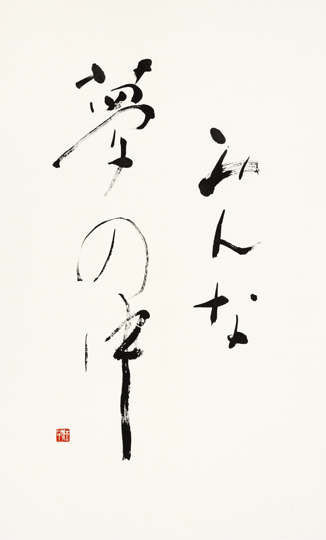 みんな
夢の中